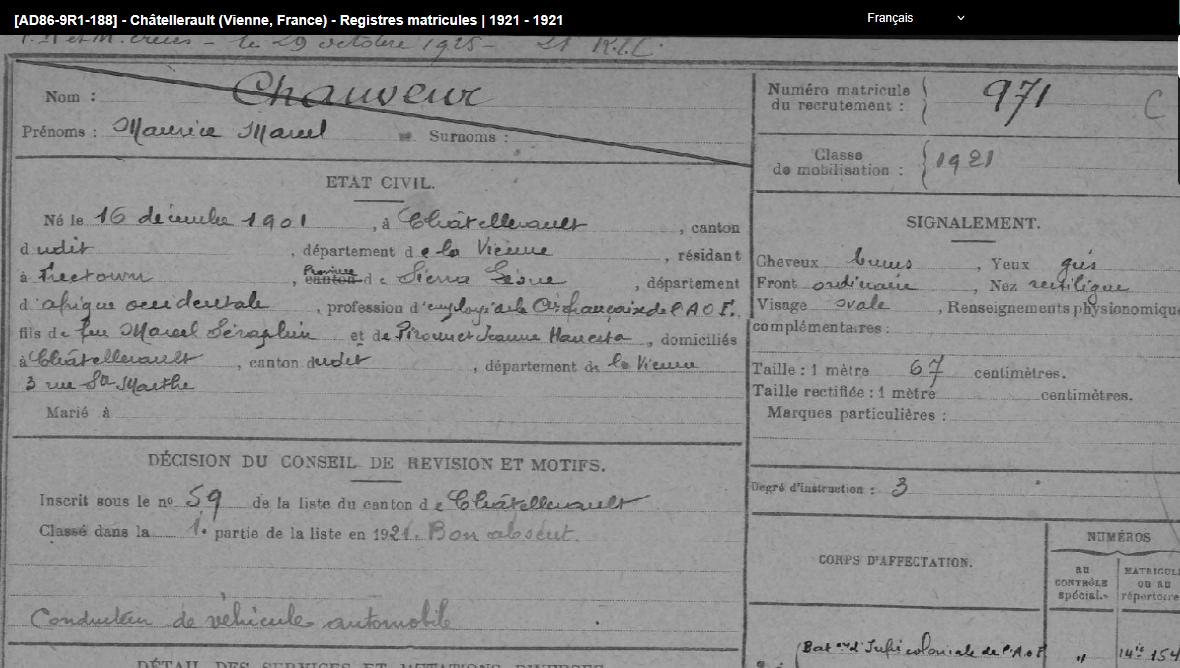 [AD86-9R1-188] - Châtellerault (Vienne, France) - Registres matricules | 1921 - 1921
Français
le 29 octobre 1925 - 21 R.I.C.
Nom : Chauveur
Prénoms : Maurice Marcel Surnoms :
Numéro matricule du recrutement : 971 C
Classe de mobilisation : 1921
ETAT CIVIL.
Né le 16 décembre 1901, à Châtellerault, canton
dudit, département de la Vienne, résidant
à Freetown, Province canton de Sierra Léone, département
d'afrique occidentale, profession d'employé à la Cie française de l'A.O.F.
fils de feu Marcel Séraphin et de Jeanne, domiciliés
à Châtellerault, canton dudit, département de la Vienne
3 rue Ste Marthe
Marié à
SIGNALEMENT.
Cheveux bruns, Yeux gris
Front ordinaire, Nez rectiligne
Visage ovale, Renseignements physionomique
complémentaires :
Taille : 1 mètre 67 centimètres.
Taille rectifiée : 1 mètre centimètres.
Marques particulières :
DÉCISION DU CONSEIL DE REVISION ET MOTIFS.
Inscrit sous le no 59 de la liste du canton de Châtellerault
Classé dans la 1e partie de la liste en 1921. Bon absent.
Conducteur de véhicule automobile
Degré d'instruction : 3
CORPS D'AFFECTATION.
NUMÉROS
au CONTRÔLE spécial.
MATRICULE ou au répertoire
Bat on d'Infie coloniale de l'A.O.F. " 14te 154
DÉTAIL DES SERVICES ET MUTATIONS DIVERSES